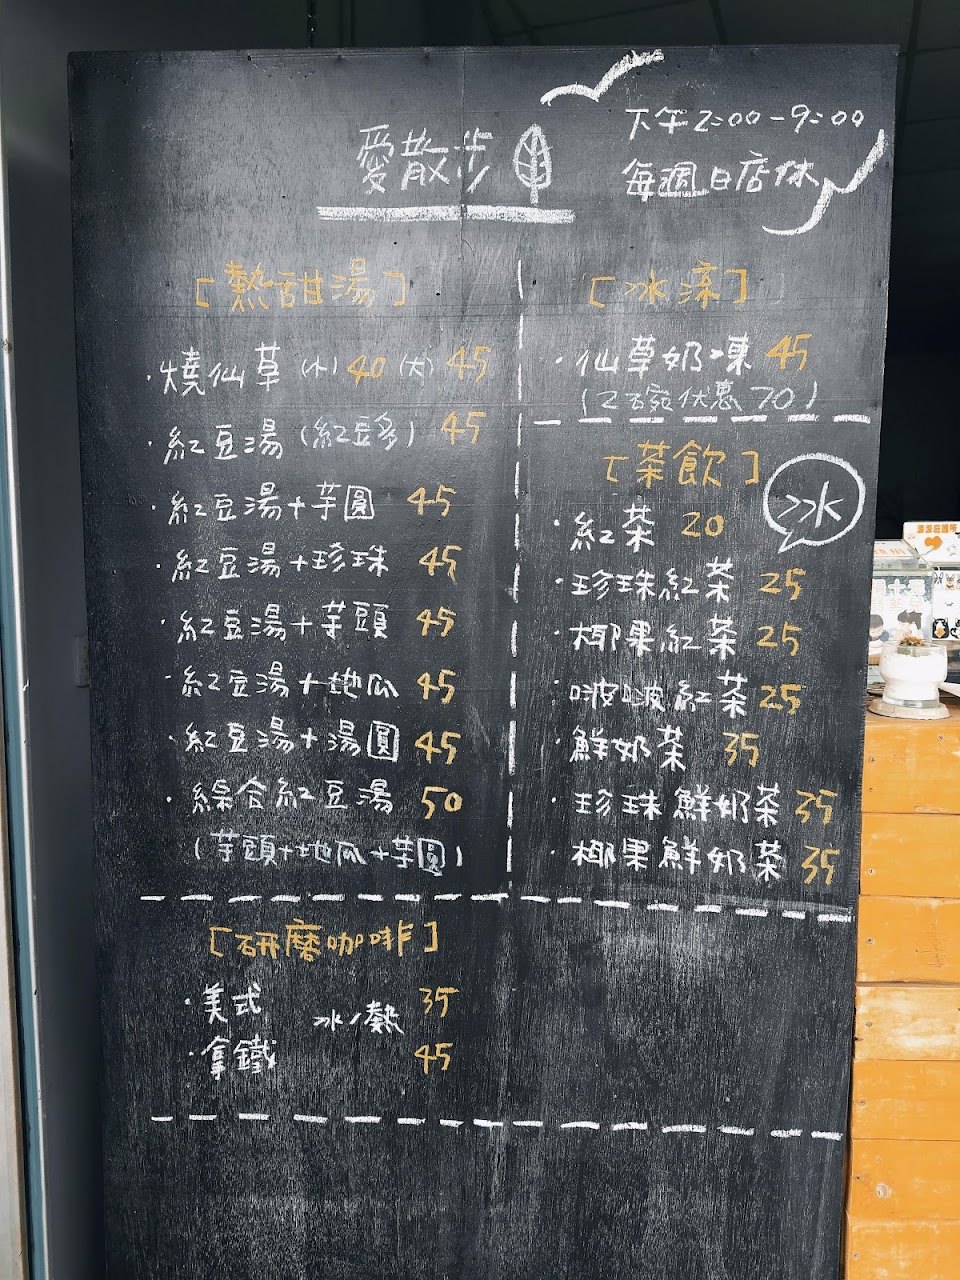 愛散步
下午2:00-9:00
每週日店休
[熱甜湯]
·燒仙草(小)40(大)45
·紅豆湯(紅豆多)45
·紅豆湯+芋圓 45
·紅豆湯+珍珠 45
·紅豆湯+芋頭 45
·紅豆湯+地瓜 45
·紅豆湯+湯圓 45
·綜合紅豆湯 50
(芋頭+地瓜+芋圓)
[冰涼]
·仙草奶凍 45
(2碗優惠70)
[茶飲]
冰
·紅茶 20
·珍珠紅茶 25
·椰果紅茶 25
·啵啵紅茶 25
·鮮奶茶 35
·珍珠鮮奶茶 35
·椰果鮮奶茶 35
[研磨咖啡]
·美式 35
冰/熱
·拿鐵 45